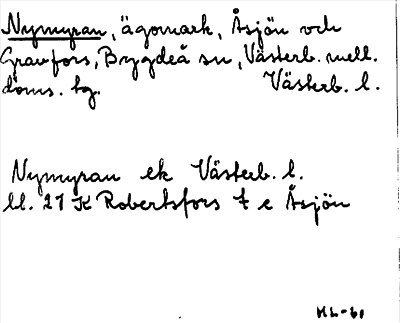 Nymyran, ägomark, Åsjön och
Granfors, Bygdeå sn, Västerb. mell.
doms. tg. Västerb. l.
Nymyran ek Västerb. l.
bl. 21 K Robertsfors 7 e Åsjön
HL-61